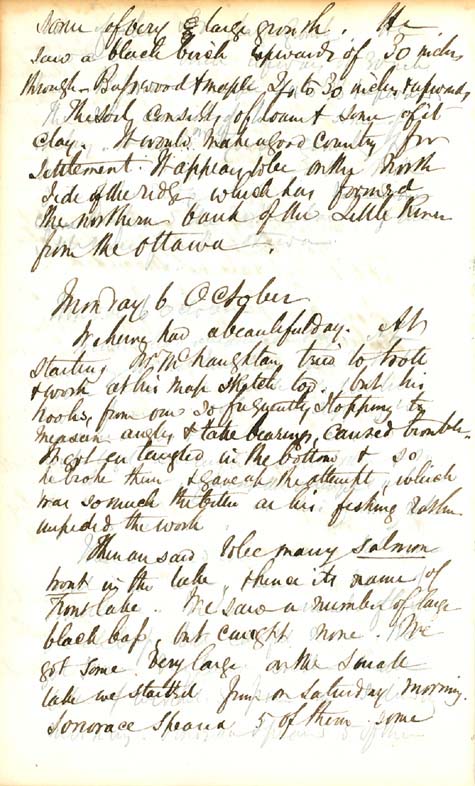 some of very large growth. He
saw a black birch upwards of 30 inches
through - Basswood & maple 24 to 30 inches & upwards
The soil consists of loam & some of it
clay. It would make a good country for
settlement. It appears to be on the North
side of the ridge which has formed
the northern bank of the Little River
from the Ottawa.
Monday 6 October
We having had a beautiful day. At
starting Mr McNaughtan tried to trole
& work at his map sketch too. but his
hooks, from our so frequently stopping to
measure angles & take bearings, caused trouble.
got entangled in the bottom & so
he broke them & gave up the attempt, which
was so much the better as his fishing rather
impeded the work
There are said to be many salmon
trout in the lake, & hence its name of
Trout Lake. We saw a number of large
black bass, but caught none. We
got some very large on the small
lake we started from on Saturday morning.
speared 5 of them some